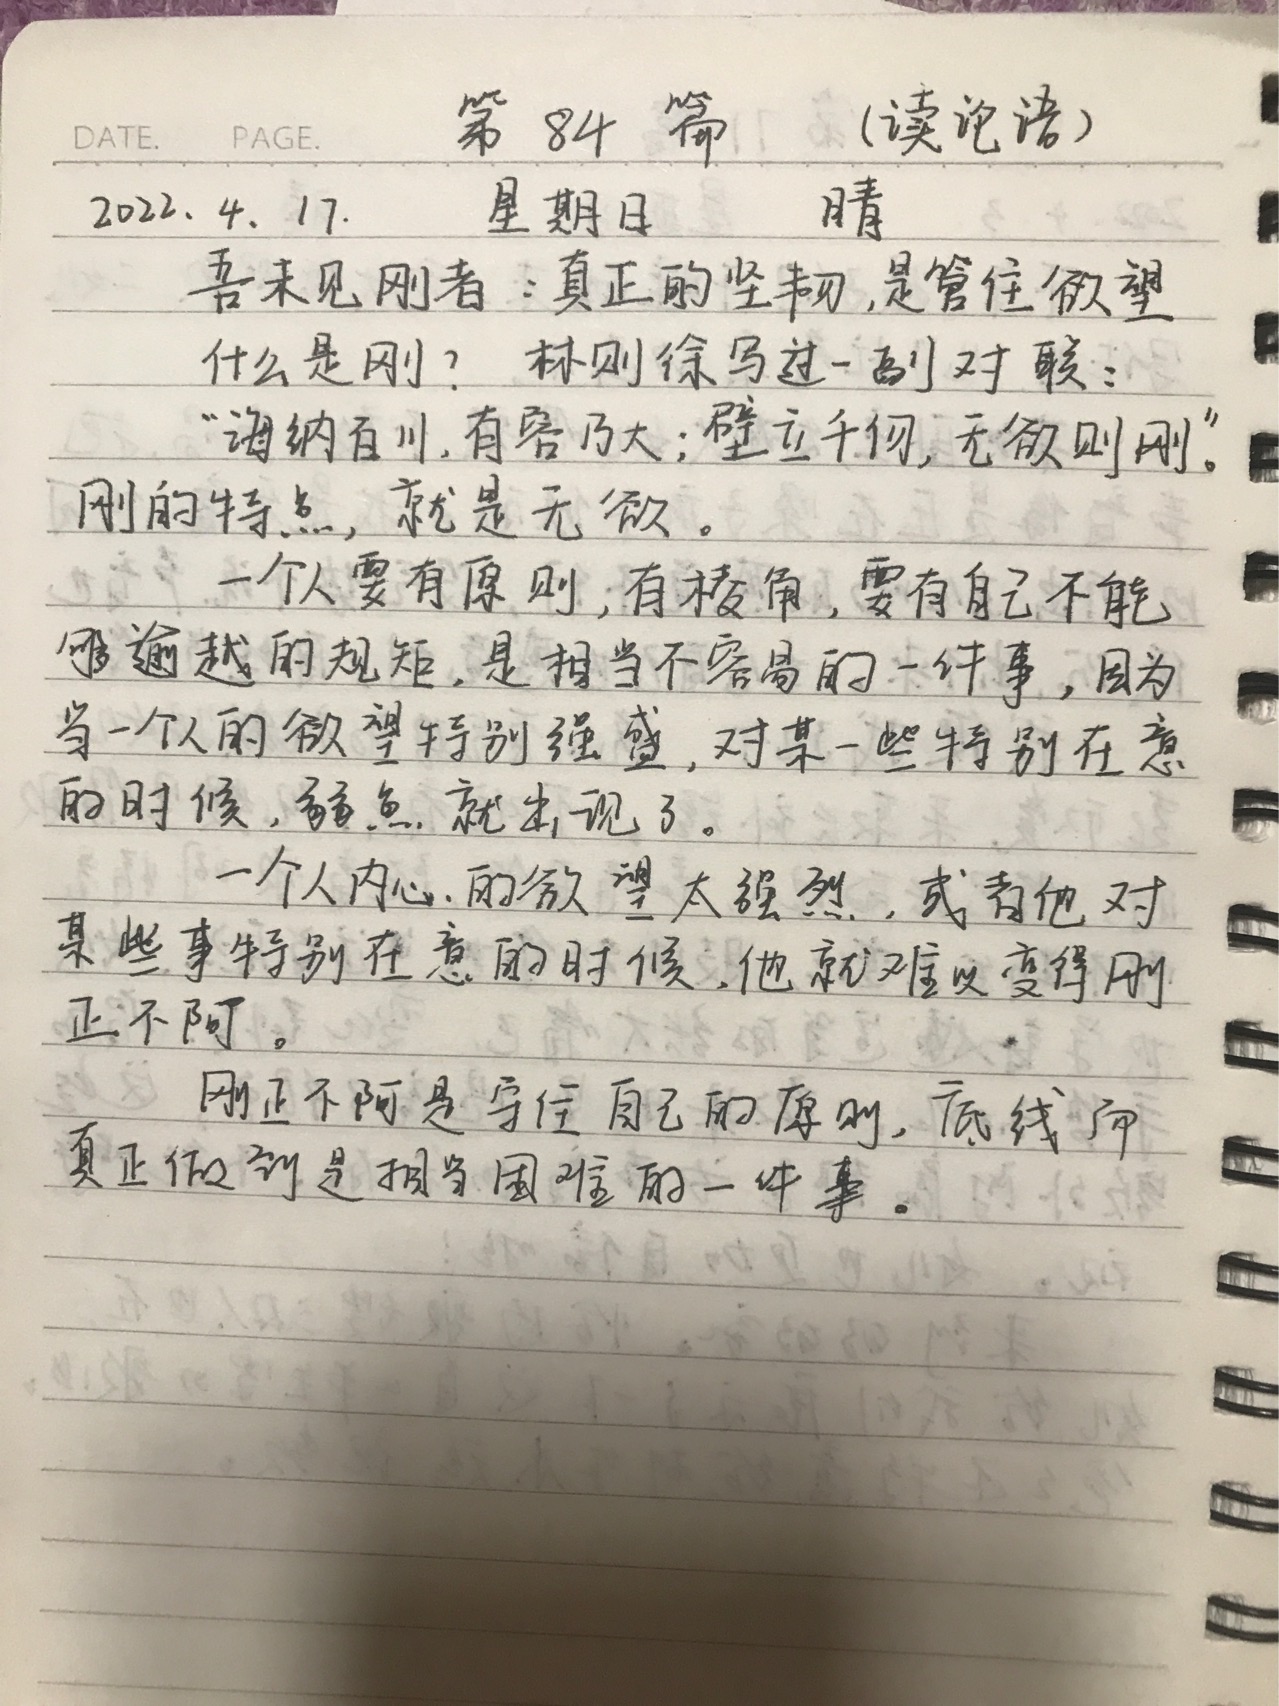 DATE. PAGE. 第84篇 (读论语)
2022.4.17. 星期日 晴
吾未见刚者:真正的坚韧,是管住欲望
什么是刚? 林则徐写过一副对联:
“海纳百川,有容乃大;壁立千仞,无欲则刚”。
刚的特点,就是无欲。
一个人要有原则,有棱角,要有自己不能
够逾越的规矩,是相当不容易的一件事,因为
当一个人的欲望特别强盛,对某一些特别在意
的时候,弱点就出现了。
一个人内心的欲望太强烈,或者他对
某些事特别在意的时候,他就难以变得刚
正不阿。
刚正不阿是守住自己的原则,底线而
真正做到是相当困难的一件事。